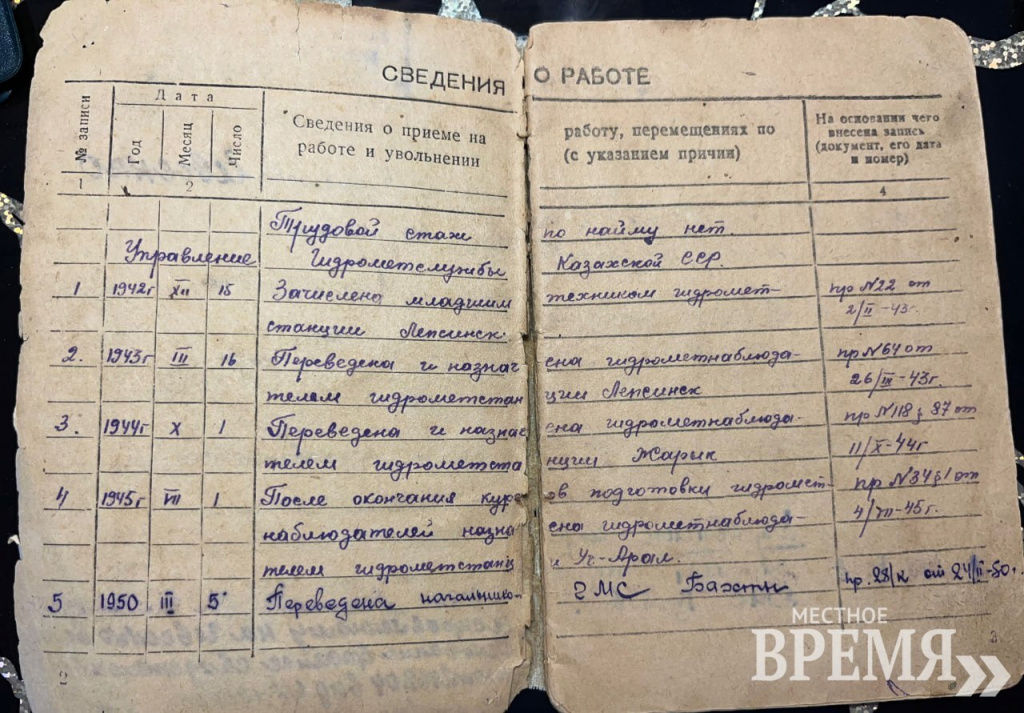 СВЕДЕНИЯ О РАБОТЕ
№ записи
Дата
Год
Месяц
Число
Сведения о приеме на
работе и увольнении
работу, перемещениях по
(с указанием причин)
На основании чего
внесена запись
(документ, его дата
и номер)
1 2 4
Трудовой стаж по найму нет.
Управление Гидрометслужбы Казахской ССР.
1 1942г XII 15 Зачислена младшим техником гидромет- пр №22 от
станции Лепсинск 2/II-43г.
2. 1943г III 16 Переведена и назначена гидрометнаблюда- пр №64 от
телем гидрометстанции Лепсинск 26/III-43г.
3. 1944г X 1 Переведена и назначена гидрометнаблюда- пр №118 § 87 от
телем гидрометстанции Жарык 11/X-44г
4 1945г VII 1 После окончания курсов подготовки гидромет- пр №34 §1 от
наблюдателей назначена гидрометнаблюда- 4/VII-45г.
телем гидрометстанции Уч-Арал.
5 1950 III 5 Переведена начальнико- ГМС Бахты пр. 28/к от 24/II-50г.
2 3
МЕСТНОЕ
ВРЕМЯ